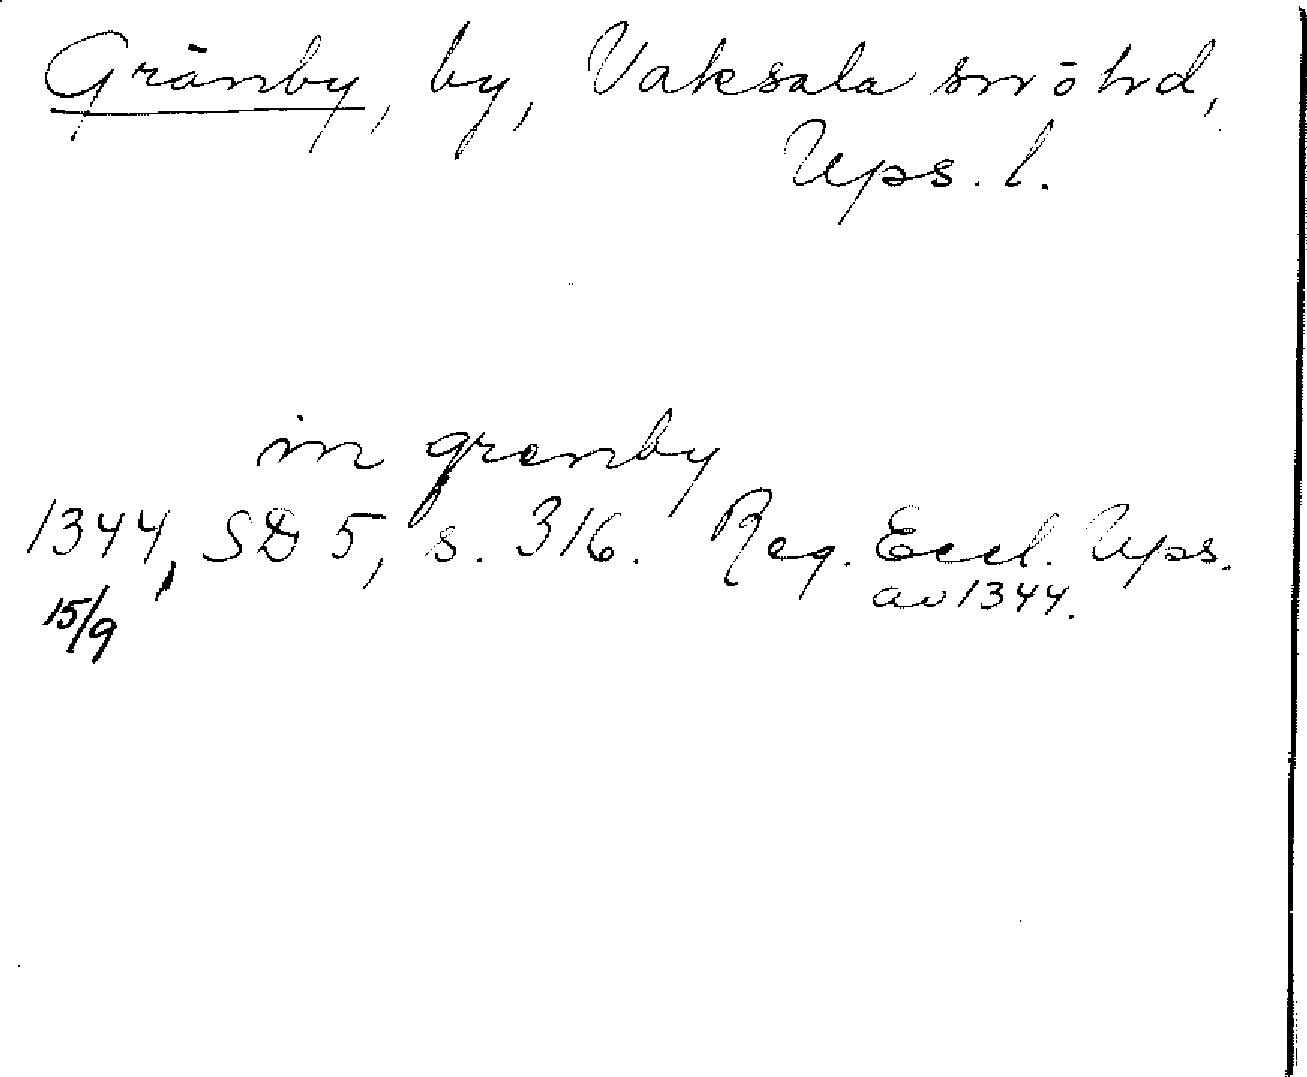 Gränby, by, Vaksala sn o hd,
Ups. l.
in grenby
1344, SD 5, s. 316. Reg. Eccl. Ups.
av 1344.
15/9